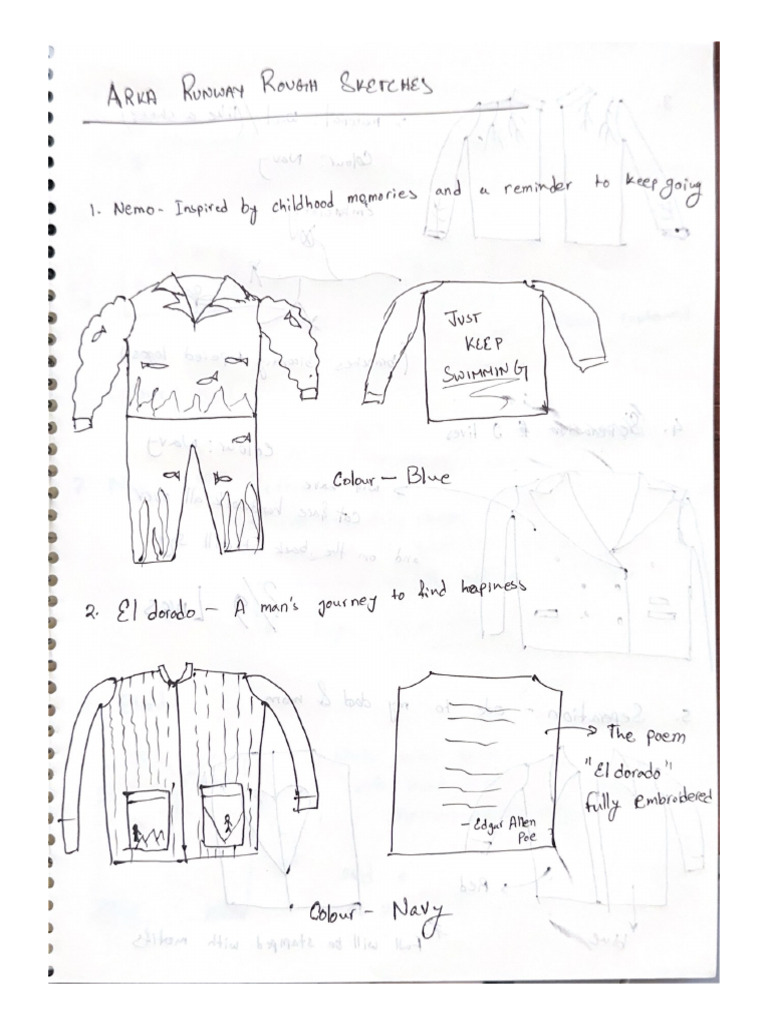 ARKA RUNWAY ROUGH SKETCHES
1. Nemo - Inspired by childhood memories and a reminder to keep going
JUST
KEEP
SWIMMING
Colour - Blue
2. El dorado - A man's journey to find hapiness
The poem
"El dorado"
fully embroidered
- Edgar Allen
Poe
Colour - Navy